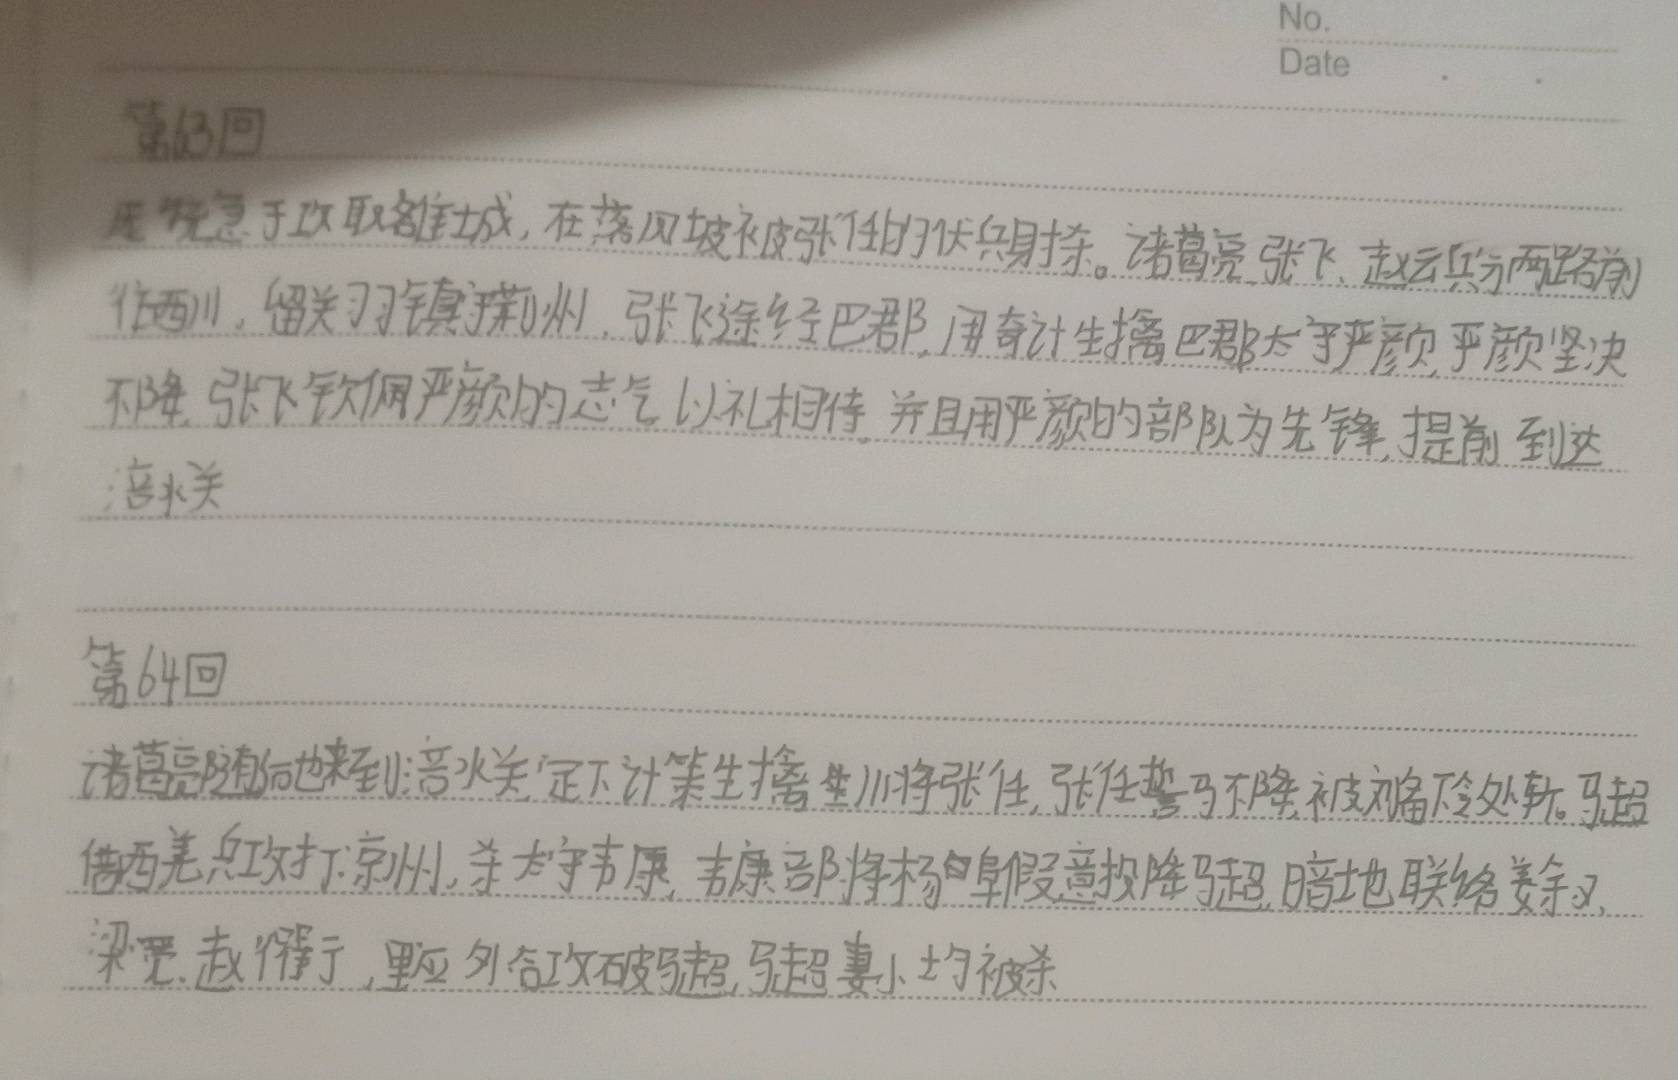 No.
Date
第63回
庞统急于攻取雒城，在落凤坡被张任的伏兵射杀。诸葛亮、张飞、赵云兵分两路前
往西川，留关羽镇守荆州，张飞途经巴郡，用奇计生擒巴郡太守严颜，严颜坚决
不降，张飞钦佩严颜的志气以礼相待，并且用严颜的部队为先锋，提前到达
涪水关
第64回
诸葛亮随后也来到涪水关，定下计策生擒川将张任，张任誓马不降，被刘备下令处斩。马超
借西羌兵攻打凉州，杀太守韦康，韦康部将杨阜假意投降马超，暗地联络姜叙，
梁宽、赵衢于，里应外合攻破马超，马超妻小均被杀